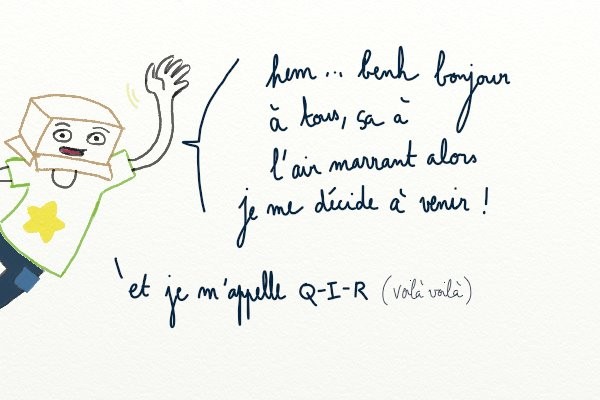 hem... benh bonjour
à tous, ça à
l'air marrant alors
je me décide à venir !
et je m'appelle Q-I-R (voilà voilà)